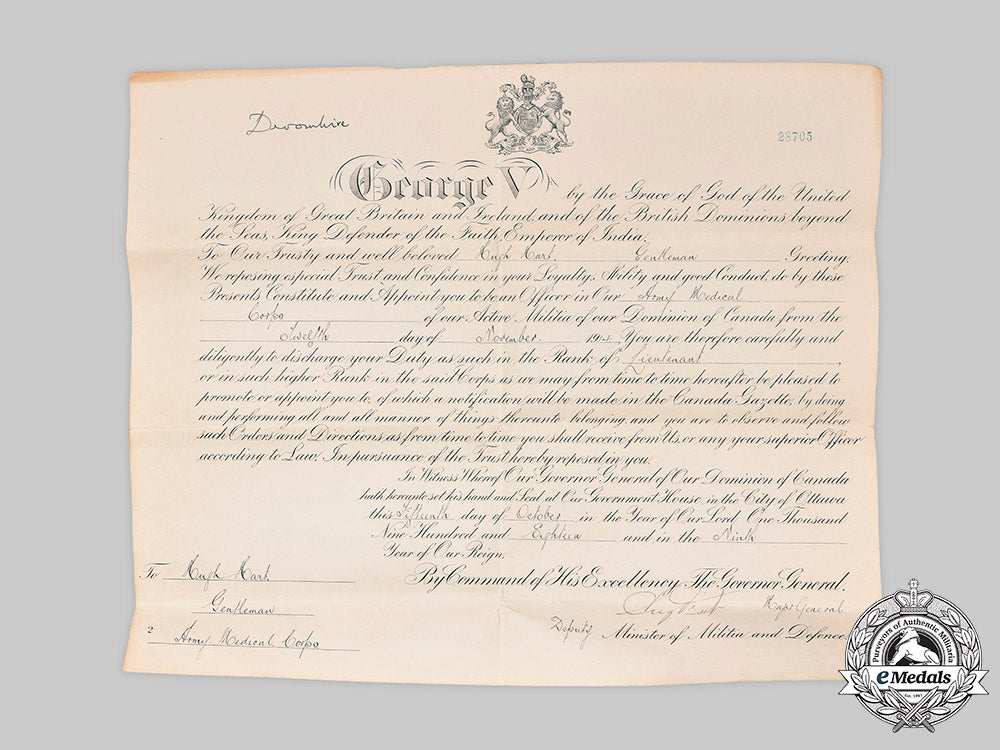 Devonshire
28705
George V by the Grace of God of the United
Kingdom of Great Britain and Ireland, and of the British Dominions beyond
the Seas, King Defender of the Faith, Emperor of India.
To Our Trusty and well beloved Hugh Hart Gentleman Greeting:
We reposing especial Trust and Confidence in your Loyalty, Ability and good Conduct, do by these
Presents Constitute and Appoint you to be an Officer in Our Army Medical
Corps of our Active Militia of our Dominion of Canada from the
Twelfth day of November 1914 You are therefore carefully and
diligently to discharge your Duty as such in the Rank of Lieutenant,
or in such higher Rank in the said Corps as we may from time to time hereafter be pleased to
promote or appoint you to, of which a notification will be made in the Canada Gazette, by doing
and performing all and all manner of things thereunto belonging and you are to observe and follow
such Orders and Directions as from time to time you shall receive from Us, or any your superior Officer
according to Law. In pursuance of the Trust hereby reposed in you.
In Witness Whereof Our Governor General of Our Dominion of Canada
hath hereunto set his hand and Seal at Our Government House in the City of Ottawa
this Fifteenth day of October in the Year of Our Lord One Thousand
Nine Hundred and Eighteen and in the Ninth
Year of Our Reign.
By Command of His Excellency The Governor General.
Major General
Deputy Minister of Militia and Defence
To Hugh Hart
Gentleman
2 Army Medical Corps
Purveyors of Authentic Militaria
eMedals